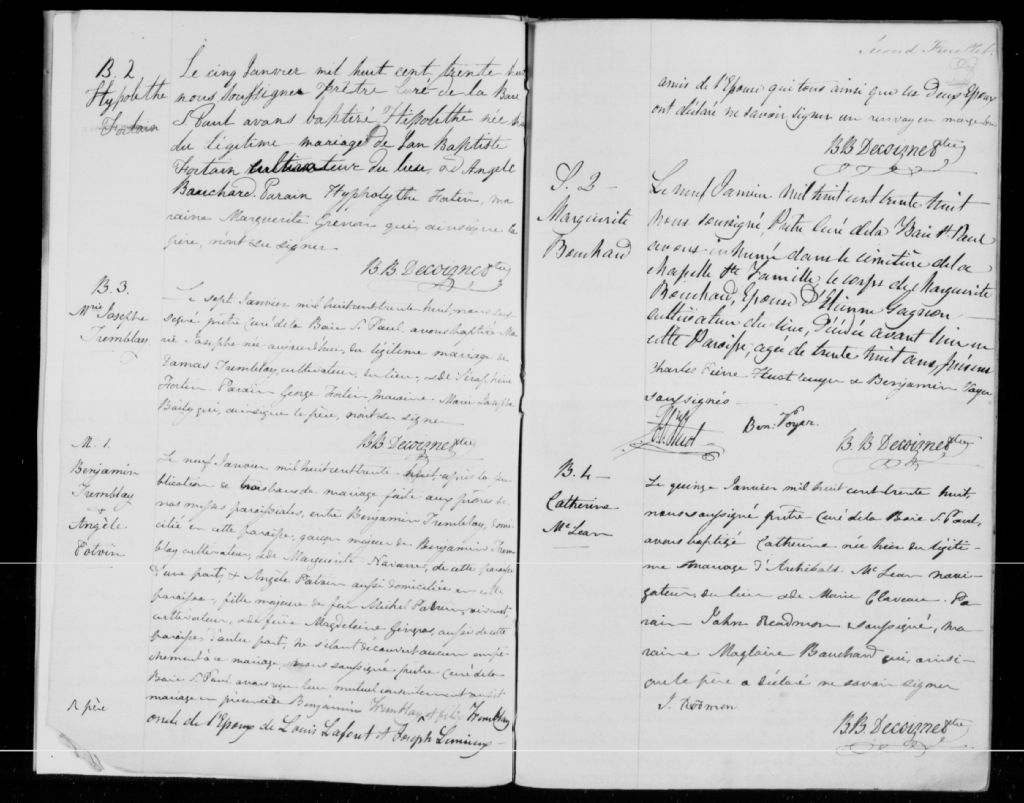 B. 2
Hypolithe
Fortain
Le cinq Janvier mil huit cent trente huit
nous soussigné Prêtre Curé de la Baie
S. Paul avons baptisé Hippolithe née
du légitime mariage de Jan Baptiste
Fortain cultivateur du lieu, & d'Angele
Bouchard. Parain Hyppolythe Fortin, ma
raine Marguerite Grenon qui, ainsi que le
père, n'ont su signer.
B. B. Decoigne ptre
B. 3.
Mrie Josephe
Tremblay
Le sept Janvier mil huit cent trente huit, nous sous
signé prêtre curé de la Baie S. Paul, avons baptisé Ma
rie Josephe née aujourd'hui, du légitime mariage de
Damas Tremblay, cultivateur, du lieu, & de Séraphine
Fortin. Parain George Fortin, maraine Marie Josephe
Boily qui, ainsi que le père, n'ont su signé.
B. B. Decoigne ptre
M. 1.
Benjamin
Tremblay
&
Angèle
Potvin
Le neuf Janvier mil huit cent trente huit, après la pu
blication de trois bans de mariage faite aux prônes de
nos messes paroissiales, entre Benjamin Tremblay, domi
cilié en cette paroisse, garçon majeur de Benjamin Trem
blay cultivateur, & de Marguerite Navarre, de cette paroisse
d'une part; & Angèle Patvin aussi domiciliée en cette
paroisse, fille majeure de feu Michel Patvin, vivant
cultivateur, & de feüe Magdeleine Gingras, aussi de cette
paroisse d'autre part; ne s'étant découvert aucun empê
chement à ce mariage, nous soussigné prêtre curé de la
Baie S. Paul avons reçu leur mutuel consentement audit
mariage en présence de Benjamin Tremblay & Tremblay
oncle de l'Epoux de Louis Lafont & Joseph Simieux
père
Second Feuillet
amis de l'Epouse qui tous ainsi que les deux Epoux
ont déclaré ne savoir signer un renvoy en marge bon
B. B. Decoigne ptre
S. 2
Marguerite
Bouchard
Le neuf Janvier mil huit cent trente huit
nous soussigné, Prêtre curé de la Baie St. Paul
avons inhumé dans le cimetière de la
chapelle Ste Famille, le corps de Marguerite
Bouchard, Epouse d'Etienne Gagnon
cultivateur du lieu, décédée avant hier en
cette Paroisse, agée de trente huit ans, présens
Charles Pierre Huot & Benjamin Voyer
soussignés
Huot
Ben. Voyer.
B. B. Decoigne ptre
B. 4
Catherine
Mc Lean
Le quinze Janvier mil huit cent trente huit
nous soussigné prêtre curé de la Baie S. Paul,
avons baptisé Catherine née hier du légiti-
me mariage d'Archibald Mc Lean navi-
gateur, du lieu & de Marie Claveau. Pa-
rain John Readmon soussigné, ma-
raine Maglaire Bouchard qui, ainsi
que le père a déclaré ne savoir signer
J. Redmon
B. B. Decoigne ptre